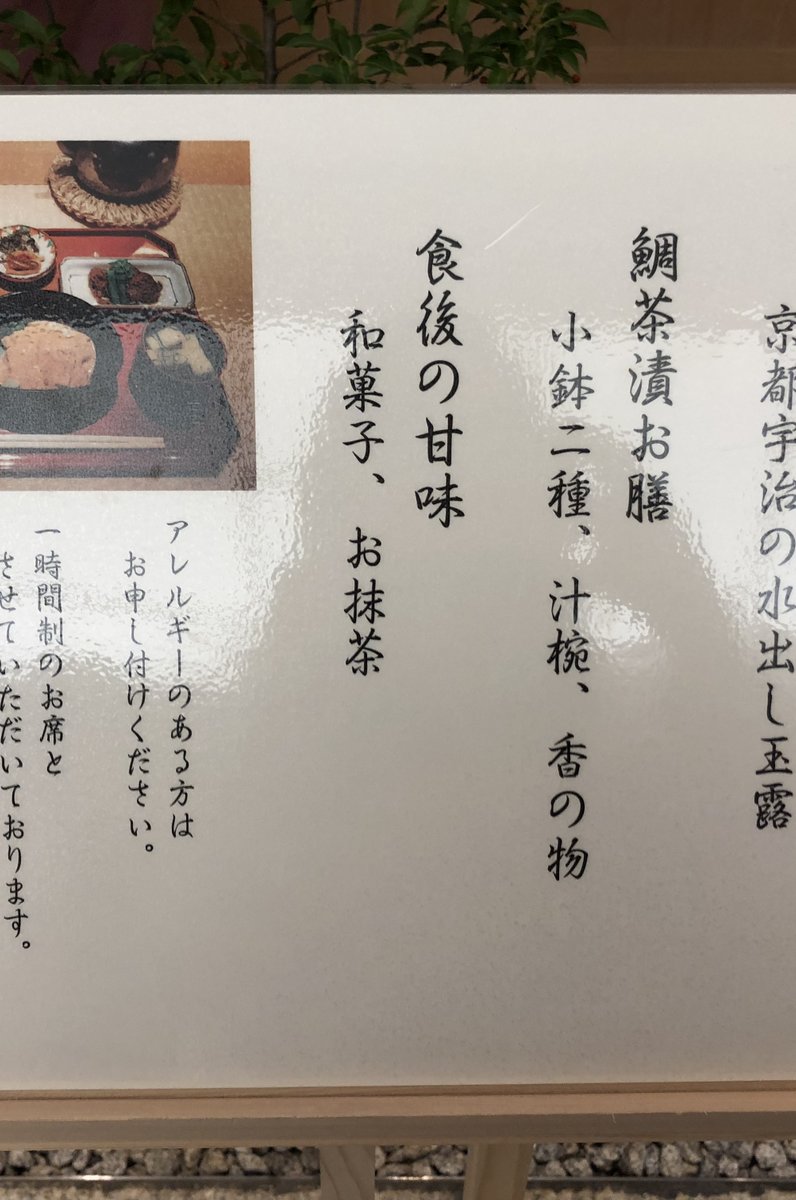 京都宇治の水出し玉露
鯛茶漬お膳
小鉢二種、汁椀、香の物
食後の甘味
和菓子、お抹茶
アレルギーのある方は
お申し付けください。
一時間制のお席と
させていただいております。